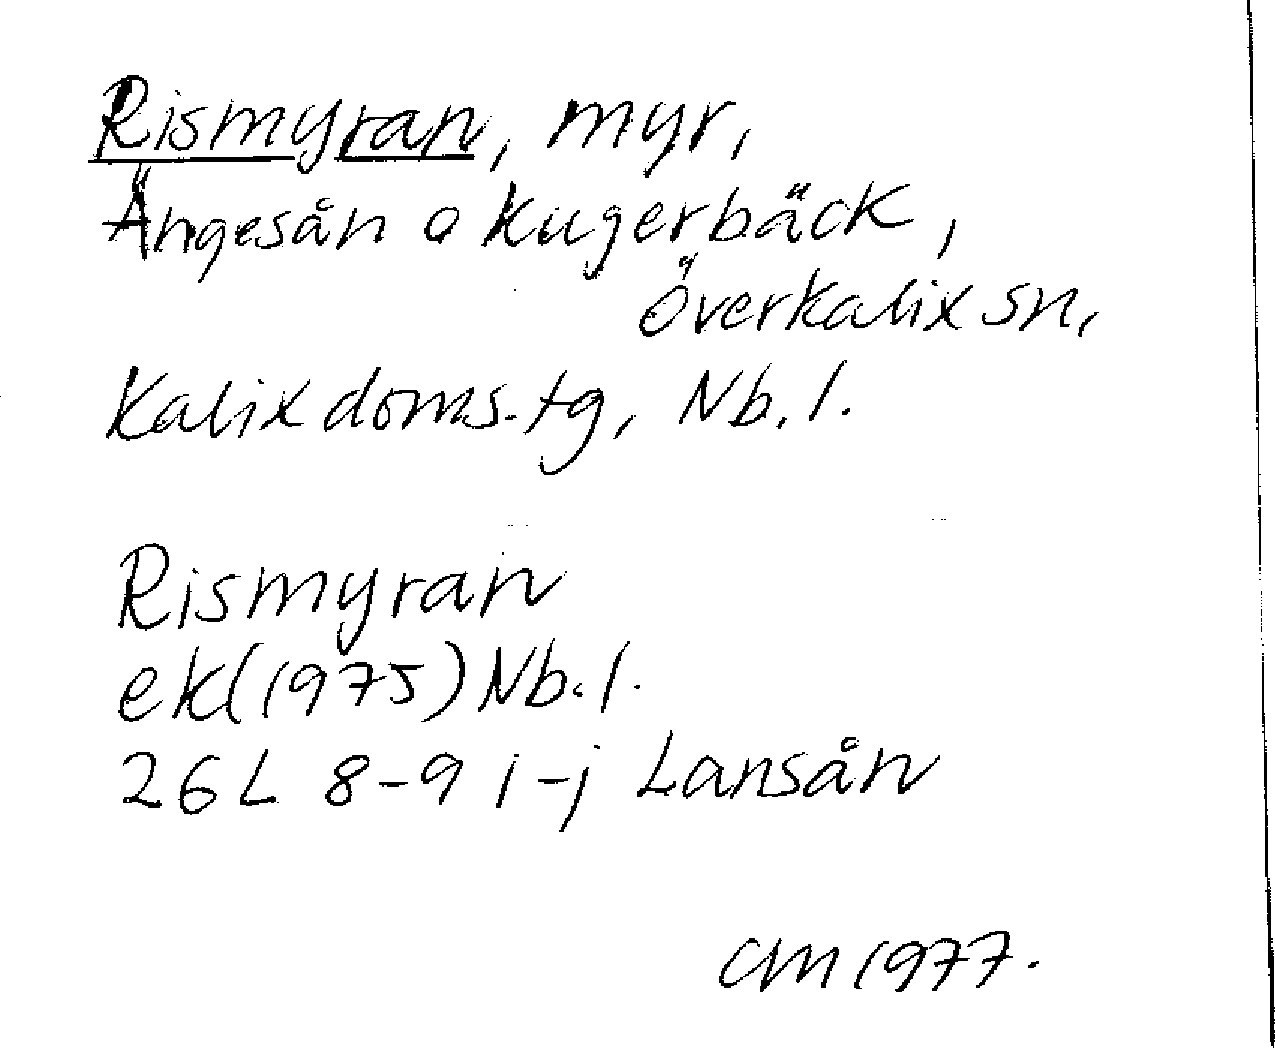 Rismyran, myr,
Ängesån o Kugerbäck,
Överkalix sn,
Kalix doms.tg, Nb.l.
Rismyran
ek(1975)Nb.l.
26L 8-9 i-j Lansån
CM 1977.